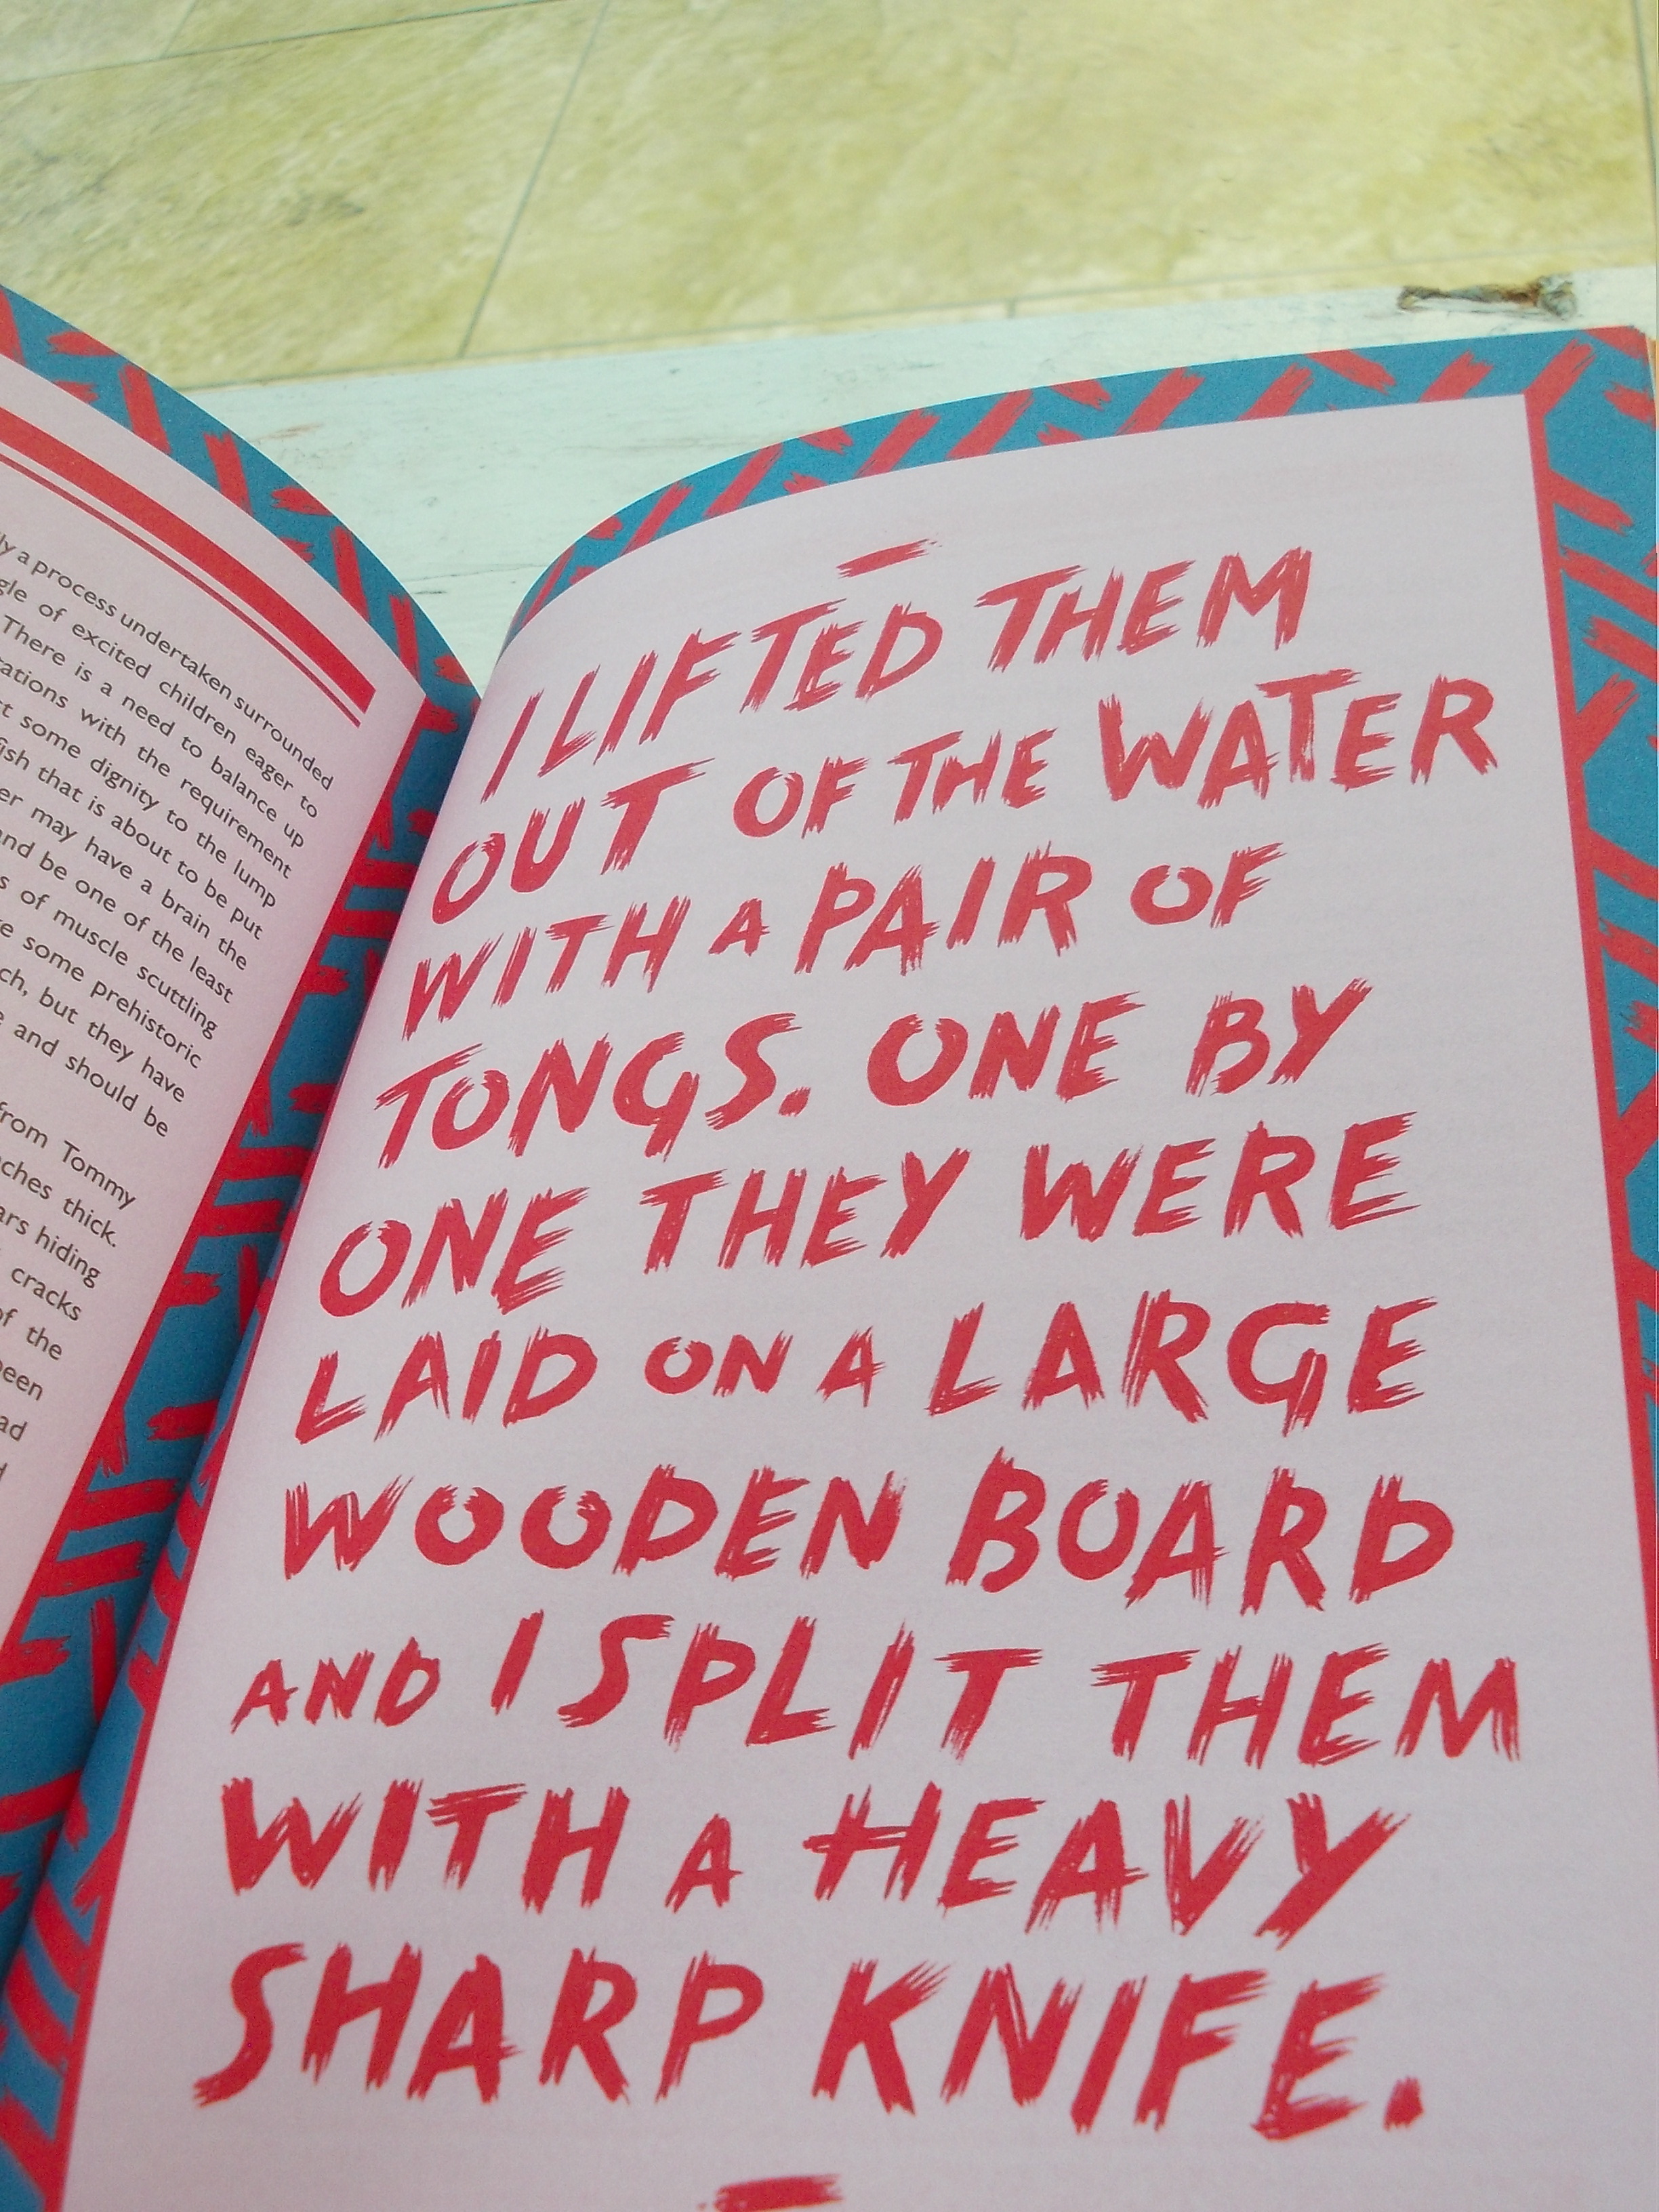 a process undertaken surrounded
of excited children eager to
There is a need to balance up
with the requirement
some dignity to the lump
fish that is about to be put
may have a brain the
and be one of the least
of muscle scuttling
some prehistoric
but they have
and should be
from Tommy
thick.
hiding
cracks
of the
been
I LIFTED THEM
OUT OF THE WATER
WITH A PAIR OF
TONGS. ONE BY
ONE THEY WERE
LAID ON A LARGE
WOODEN BOARD
AND I SPLIT THEM
WITH A HEAVY
SHARP KNIFE.